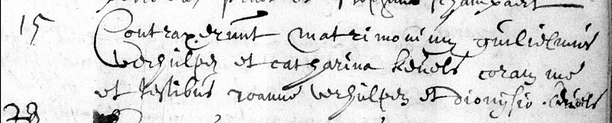 15 Contraxerunt matrimonium guilielmus
verhulpen et catharina kevels coram me
et testibus joanne verhulpen et dionysio kevels
28